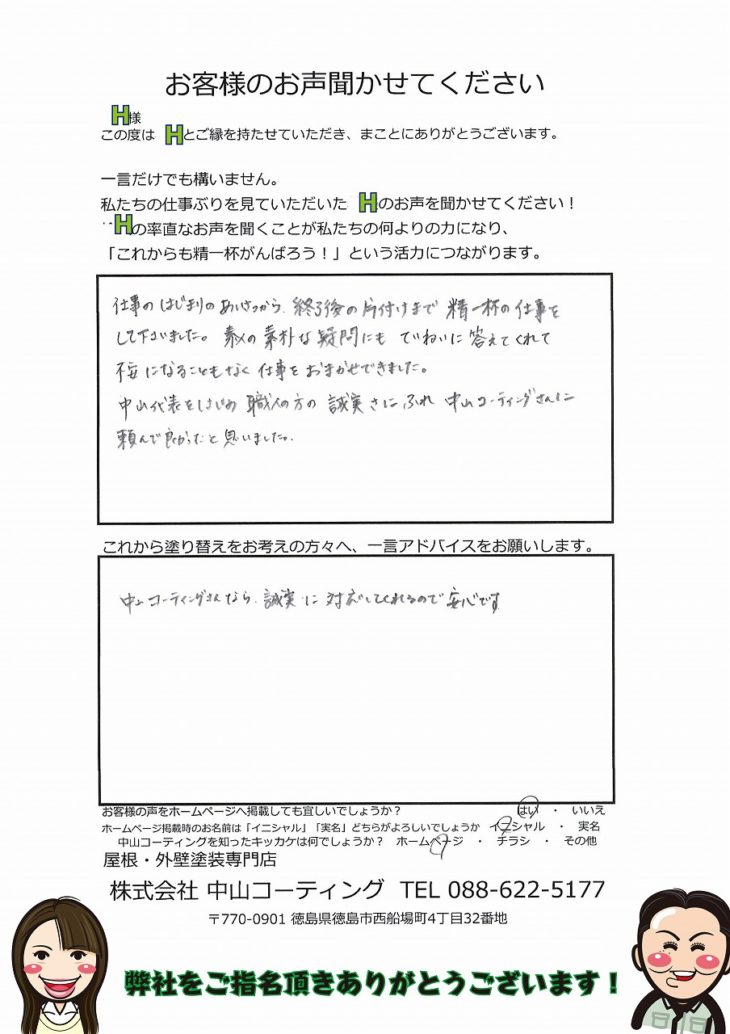 お客様のお声聞かせてください
H様
この度は Hとご縁を持たせていただき、まことにありがとうございます。
一言だけでも構いません。
私たちの仕事ぶりを見ていただいた Hのお声を聞かせてください！
Hの率直なお声を聞くことが私たちの何よりの力になり、
「これからも精一杯がんばろう！」という活力につながります。
仕事のはじまりのあいさつから、終了後の片付けまで 精一杯の仕事を
して下さいました。 素人の素朴な疑問にも ていねいに答えてくれて
不安になることもなく仕事をおまかせできました。
中山代表をはじめ 職人の方の 誠実さにふれ 中山コーティングさんに
頼んで良かったと思いました。
これから塗り替えをお考えの方々へ、一言アドバイスをお願いします。
中山コーティングさんなら、誠実に対応してくれるので安心です
お客様の声をホームページへ掲載しても宜しいでしょうか？ はい ・ いいえ
ホームページ掲載時のお名前は「イニシャル」「実名」どちらがよろしいでしょうか イニシャル ・ 実名
中山コーティングを知ったキッカケは何でしょうか？ ホームページ ・ チラシ ・ その他
屋根・外壁塗装専門店
株式会社 中山コーティング TEL 088-622-5177
〒770-0901 徳島県徳島市西船場町4丁目32番地
弊社をご指名頂きありがとうございます！